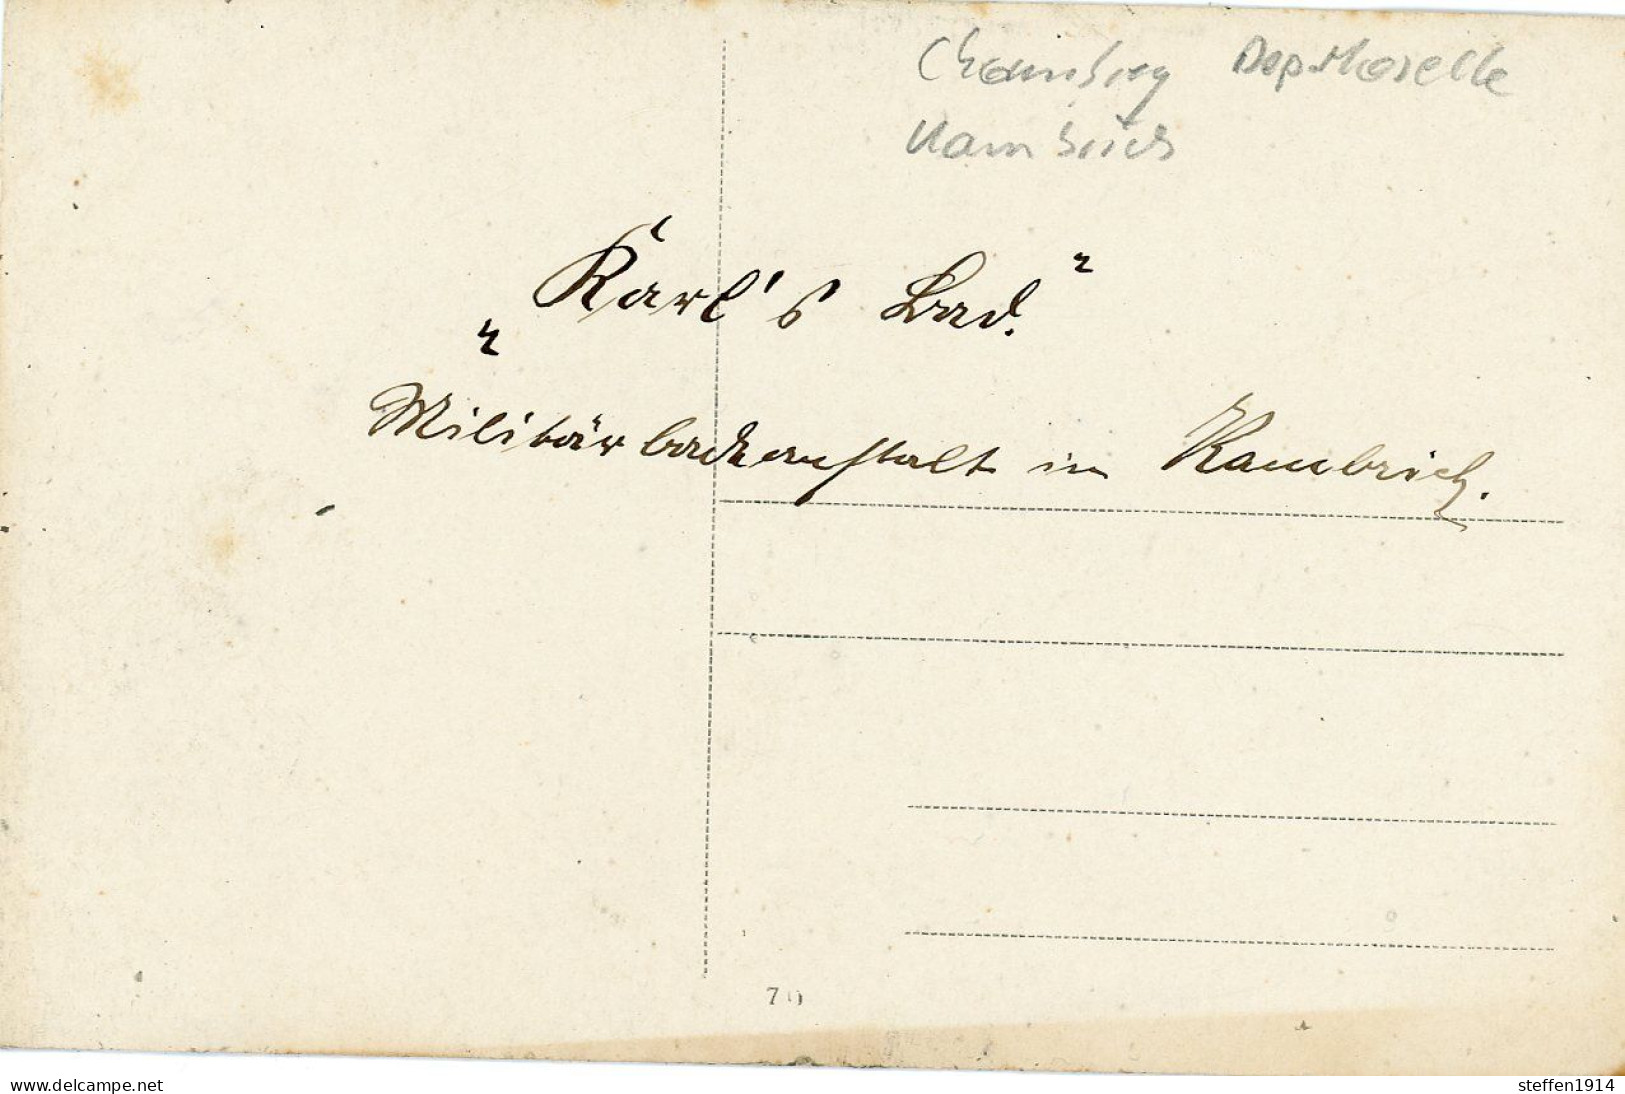 Chambrey Dep. Moselle
Kambrich
„Karl's Bad."
Militärbadeanstalt in Kambrich.
70
delcampe.net
steffen1914